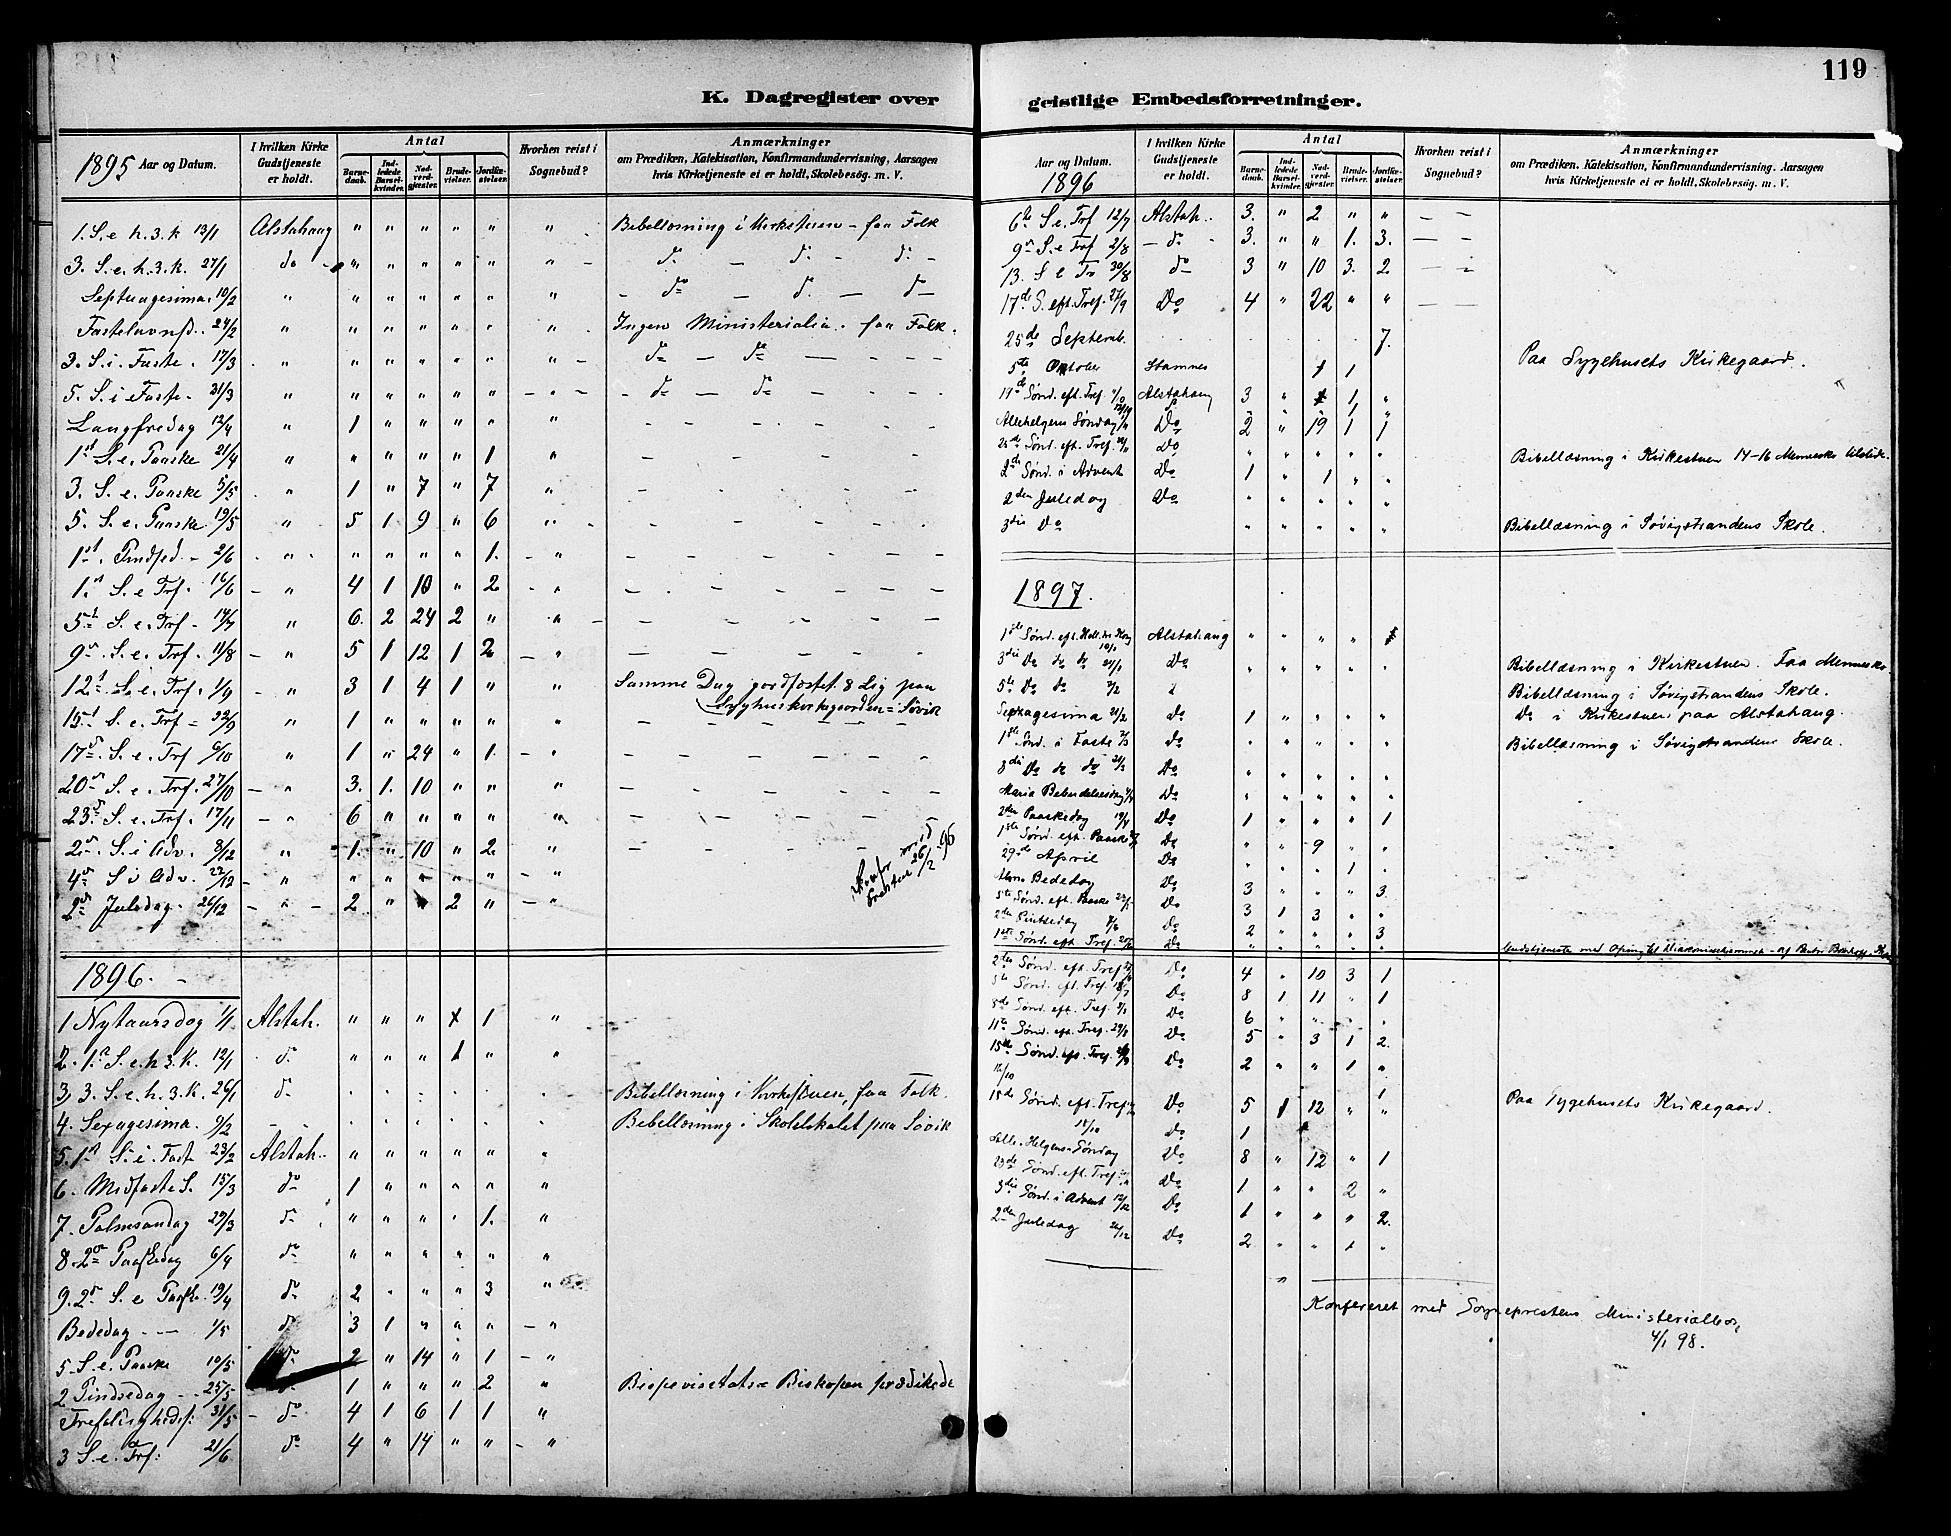 119
K. Dagregister over
geistlige Embedsforretninger.
1895 Aar og Datum.
I hvilken Kirke Gudstjeneste er holdt.
Antal
Barnedaab.
Indledede Barselkvinder.
Nadverdgjæster.
Brudevielser.
Jordfæstelser.
Hvorhen reist i Sognebud?
Anmærkninger
om Prædiken, Katekisation, Konfirmandundervisning, Aarsagen
hvis Kirketjeneste ei er holdt, Skolebesøg. m. V.
1. S. e. h. 3. k 13/1 Alstahaug " " " " " " Bibellæsning i Kirkstuen - faa Folk
3. S. e. h. 3. k. 27/1 do " " " " " " do — do - do -
Septuagesima. 10/2 " " " " " " " - do — do — do
Fastelavnsd. 24/2 " " " " " " " Ingen Ministerialia. faa Folk.
3. S. i. Faste. 17/3 " " " " " " " do — do — - - -
5. S. i Faste. 31/3 " " " " " " - " - - do — do — - - -
Langfredag 12/4 " 1 " " " " "
1st S. e. Paaske 21/4 " " " " " 1 "
3. S. e. Paaske 5/5 " 1 " 7 " 7 "
5. S. e. Paaske 19/5 " 5 1 9 " 6 "
1st. Pindsed. 2/6 " " " " " 1. "
1st S. e Trf. 16/6 " 4 1 10 " 2 "
5t S. e. Trf. 14/7 " 6. 2 24 2 " "
9n S. e. Trf. 11/8 " 5 1 12 1 2 "
12t S. e. Trf. 1/9 " 3 1 4 1 " " Samme Dag jordfæstet 8 Lig paa
Sygehuskirkegaarden i Søvik
15t S. e. Trf 22/9 " 1 " " " " "
17d S. e. Trf 6/10 " 1 " 24 " 1. "
20n S. e. Trf. 27/10 " 3. 1. 10 " " "
23d S. e. Trf. 17/11 " 6 " " " " "
2n S. i Adv. 8/12 " 1. " 10 " 2. "
4n S. i Adv. 22/12 " " " " " " "
2n Juledag. 26/12 " 2 " " 2 " "
Konfr med
26/2 96
1896.
1 Nytaarsdag 1/1 Alstah. " " " 1 "
2. 1n S. e. h. 3. K. 12/1 do " " " 1 " "
3, 3. S. e. h. 3. K. 26/1 do Bibellæsning i Kirkestuen, faa Folk.
4. Sexagesima. 9/2 Bibellæsning i Skolelokalet paa Søvik
5. 1st S. i Fast 23/2 Alstah. " " " " " "
6. Midfaste S. 15/3 do 1 " " " " "
7. Palmsøndag 29/3 do " " " " 1. "
8. 2n Paaskedag 6/4 do " " " " " "
9. 2n S. e Paaske. 19/4 do 2 " " " 3 "
Bededag - — 1/5 do 3 1 " " " "
5 S. e. Paaske 10/5 do 2 " 14 " 1 "
2 Pindsedag - - 25/5 1 " " " 2 " Bispevisetats = Biskopen prædikede
Trefoligheds: 31/5 do 4 1 6 1 1 "
3 S. e. Trf: 21/6 do 4 " 14 " " "
Aar og Datum.
1896
I hvilken Kirke Gudstjeneste er holdt.
Antal
Barnedaab.
Indledede Barselkvinder.
Nadverdgjæster.
Brudevielser.
Jordfæstelser.
Hvorhen reist i Sognebud?
Anmærkninger
om Prædiken, Katekisation, Konfirmandundervisning, Aarsagen
hvis Kirketjeneste ei er holdt, Skolebesøg. m. V.
6te S. e. Trf 12/7 Alstah. 3. " 2 " " — —
9n S. e Trf 2/8 - do - 3. " " 1. 3. — —
13. S e Tr 30/8 do 3 " 10 3. 2 — —
17de S. eft. Tref. 27/9 Do 4 " 22 " " — —
25de Septemb. 7. Paa Sygehusets Kirkegaard.
5te Oktober Stamnes 1
19de Sønd. eft. Tref. Alstahaug 3 " 1, "
Allehelgens Søndag 1/11 Do 2 " 19 1 1
25de Sønd. eft. Tref. Do " " " " " Bibellæsning i Kirkestuen 14-16 Mennesker tilstede.
2de Sønd. i Advent Do 1 " 1 " "
2den Juledag Do
3die Do " " " " " Bibellæsning i Søvigstrandens Skole.
1897.
1ste Sønd. eft. Hell. tre Kong 10/1 Alstahaug " " " "
3die Do do do 24/1 Do " " " " " Bibellæsning i Kirkestuen. Faa Mennesker
5te Do do 7/2 Bibellæsning i Søvigstrandens Skole.
Sexagesima 21/2 Do 1 " " " " Do i Kirkestuen paa Alstahaug.
1ste Sønd. i Faste 7/3 Do " " " " " Bibellæsning i Søvigstrandens Skole.
3die Do do do 21/3 Do " " " " "
Maria Bebudelsesdag Do " " " " "
2den Paaskedag 19/4 Do 1 " " " 1
1ste Sønd. eft. Paaske Do " " 9 " "
29de April Do " " " 1 "
Alm. Bededag Do 3 " " " 3
5te Sønd. eft. Paaske 23/5 Do 3 1 3 " "
2den Pintsedag 7/6 Do 2 " " " 3
1ste Sønd. eft. Tref. 20/6 Do " " " " " Gudstjeneste med
2den Sønd. eft. Tref. Do 4 " 10 3 1
5te Sønd. eft. Tref. 18/7 Do 8 1 11 " 1
8de Sønd. eft. Tref. 8/8 Do 6 " " " "
11te Sønd. eft. Tref. 29/8 Do 5 " 3 1 2.
15de Sønd. eft. Tref. Do 2 " " 1 "
12/10 1 Paa Sygehusets Kirkegaard.
18de Sønd. eft. Tref Do 5 1 12 " "
18/10 Do 1
Alle-Helgens-Søndag Do 8 " 12 " 1
23de Sønd. eft. Tref. Do 1 " " 2 "
3die Sønd. i Advent 12/12 Do 1 " " " 2.
2den Juledag 26/12 Do 2 " " 1 "
Konfereret med Sogneprestens Ministerialbog
4/1 98.